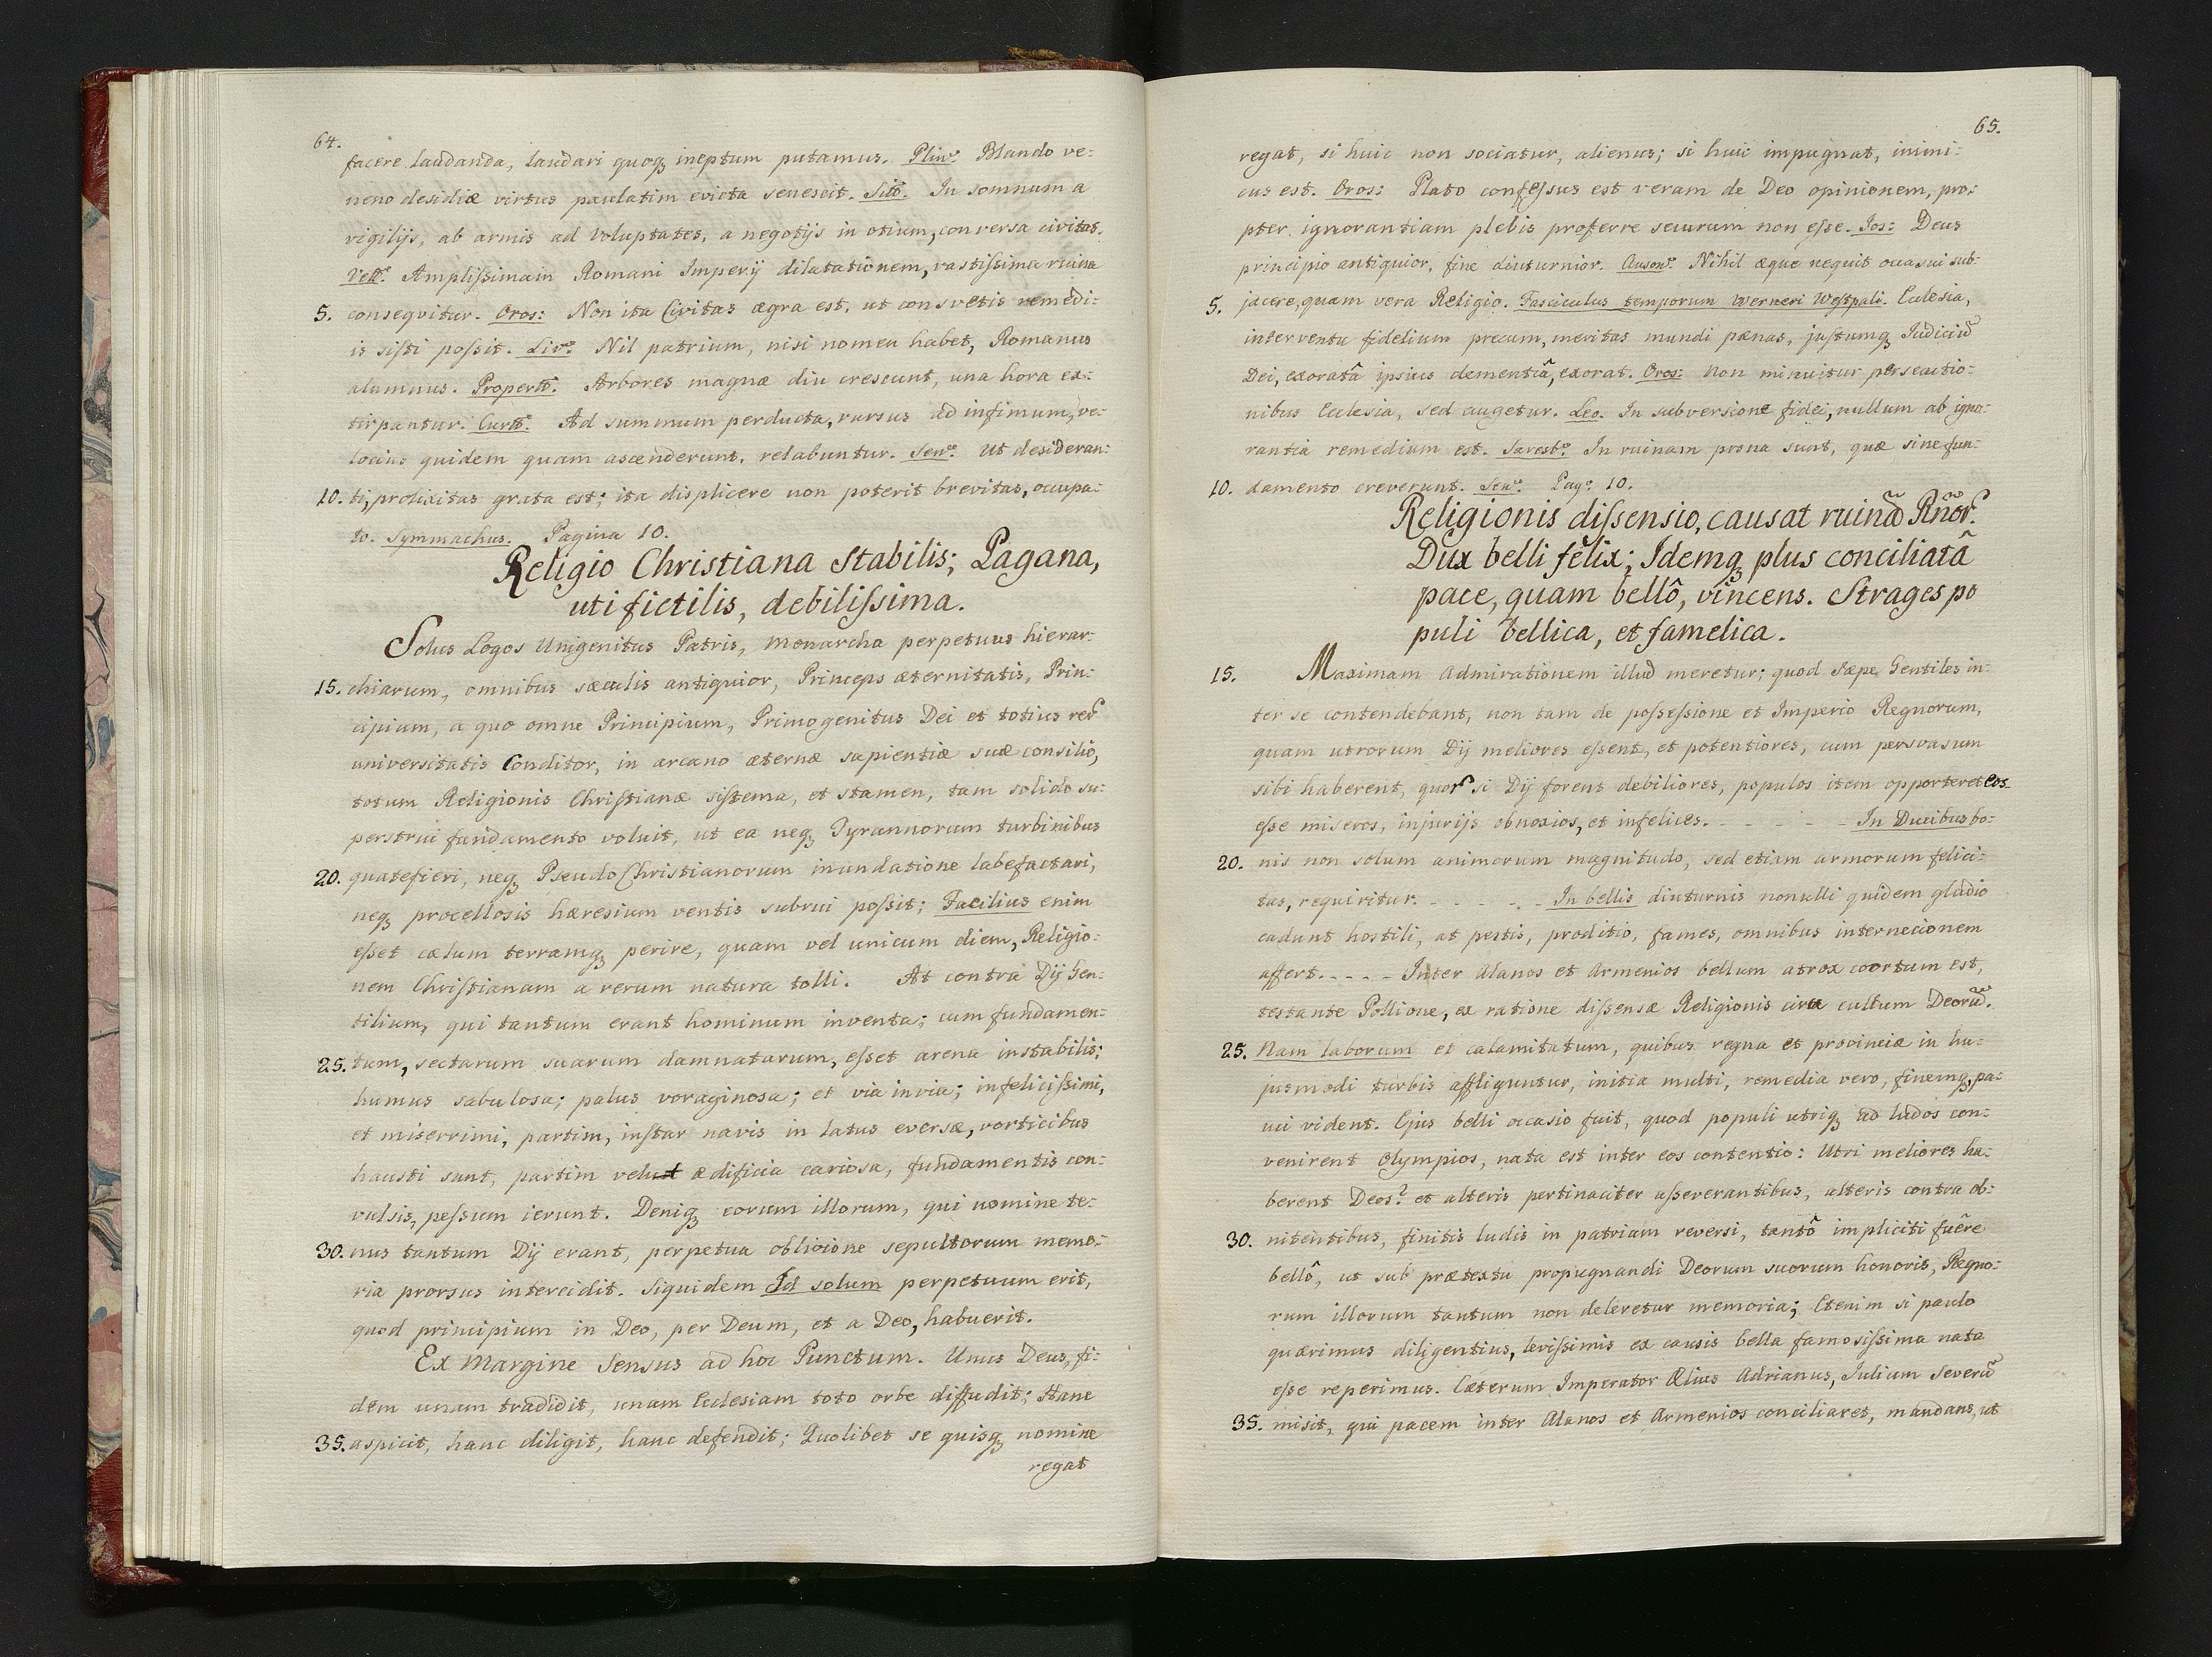 64.
facere laudanda, laudari quoqȝ ineptum putamus. Plin⁹: Blando ve:
neno desidiæ virtus paulatim evicta senescit. Sill. In somnum a
vigilijs, ab armis ad voluptates, a negotijs in otium, conversa civitas.
Vell⁹. Amplissimam Romani Imperij dilatationem, vastissima ruina
5. consequitur. Oros: Non ita Civitas ægra est, ut consvetis remedi:
is sisti possit. Liv⁹: Nil patrium, nisi nomen habet, Romanus
alumnus. Propertt. Arbores magnæ diu crescunt, una hora ex:
tirpantur. Curtt: Ad summum perducta, rursus ad infimum, ve:
locius quidem quam ascenderunt, relabuntur. Senᶜᵃ: Ut desideran:
10. ti, prolixitas grata est; ita displicere non poterit brevitas, occupa:
to. Symmachus. Pagina 10.
Religio Christiana Stabilis; Pagana,
uti fictilis, debilissima.
Solus Logos Unigenitus Patris, Monarcha perpetuus hierar:
15. chiarum, omnibus sæculis antiquior, Princeps æternitatis, Prin:
cipium, a quo omne Principium, Primogenitus Dei et totius rer̃
universitatis Conditor, in arcano æternæ sapientiæ suæ consilio,
totum Religionis Christianæ sistema, et stamen, tam solido su:
perstrui fundamento voluit, ut ea neqȝ Tyrannorum turbinibus
20. quatefieri, neqȝ PseudoChristianorum inundatione labefactari,
neqȝ procellosis hæresium ventis subrui possit; Facilius enim
esset cælum terramqȝ perire, quam vel unicum diem, Religio:
nem Christianam a rerum natura tolli. At contra Dij Gen:
tilium, qui tantum erant hominum inventa; cum fundamen:
25. tum, sectarum suarum damnatarum, esset arena instabilis;
humus sabulosa; palus voraginosa; et via invia; infelicissimi,
et miserrimi, partim, instar navis in latus eversæ, vorticibus
hausti sunt, partim velut ædificia cariosa, fundamentis con:
vulsis, pessum ierunt. Deniqȝ eorum illorum, qui nomine te:
30. nus tantum Dij erant, perpetua oblivione sepultorum memo:
ria prorsus intercidit. Siquidem Id solum perpetuum erit,
quod principium in Deo, per Deum, et a Deo, habuerit.
Ex Margine Sensus ad hoc Punctum. Unus Deus, fi:
dem unam tradidit, unam Ecclesiam toto orbe diffudit; Hanc
35. aspicit, hanc diligit, hanc defendit; Quolibet se quisqȝ nomine
regat
65.
regat, si huic non sociatur, alienus; si huic impugnat, inimi:
cus est. Oros: Plato confessus est veram de Deo opinionem, pro:
pter ignorantiam plebis proferre securum non esse. Jos: Deus
principio antiquior, fine diuturnior. Auson⁹. Nihil æque nequit occasui sub:
5. jacere, quam vera Religio. Fasciculus temporum Werneri Westpali. Eclesia,
interventu fidelium precum, meritas mundi pænas, justumqȝ Judiciũ
Dei, exoratâ ipsius clementiâ, exorat. Oros: Non minuitur persecutio:
nibus Eclesia, sed augetur. Leo. In subversione fidei, nullum ab igno:
rantia remedium est. Sarest⁹: In ruinam prona sunt, quæ sine fun:
10. damento creverunt. Senᶜᵃ. Pag⁹. 10.
Religionis dissensio, causat ruinã Rñor̃.
Dux belli fêlix; Idemqȝ plus conciliatâ
pace, quam bellô, vincens. Strages po
puli bellica, et famelica.
15. Maximam Admirationem illud meretur; quod sæpe Gentiles in:
ter se contendebant, non tam de possessione et Imperio Regnorum,
quam utrorum Dij meliores essent, et potentiores, cum persvasum
sibi haberent, quor̃ si Dij forent debiliores, populos item opporteret eos
esse miseros, injurijs obnoxios, et infelices. - - - - - In Ducibus bo:
20. nis non solum animorum magnitudo, sed etiam armorum felici:
tas, requiritur. - - - - - In bellis diuturnis nonulli quidem gladio
cadunt hostili, at pestis, proditio, fames, omnibus internecionem
affert. - - - - Inter Alanos et Armenios bellum atrox coortum est,
testante Pollione, ex ratione dissensæ Religionis circa cultum Deorũ.
25. Nam laborum et calamitatum, quibus regna et provinciæ in hu:
jusmodi turbis affliguntur, initia multi, remedia vero, finemqȝ, pa:
uci vident. Ejus belli occasio fuit, quod populi utriqȝ ad ludos con:
venirent Olympios, nata est inter eos contentio: Utri meliores ha:
berent Deos? et alteris pertinaciter asseverantibus, alteris contra ob:
30. nitentibus, finitis ludis in patriam reversi, tantô impliciti fuêre
bellô, ut sub prætextu propugnandi Deorum suorum honoris, Regno:
rum illorum tantum non deleretur memoria; Etenim si paulo
quærimus diligentius, levissimis ex causis bella famosissima nata
esse reperimus. Cæterum Imperator Ælius Adrianus, Julium Severũ
35. misit, qui pacem inter Alanos et Armenios conciliaret, mandans, ut